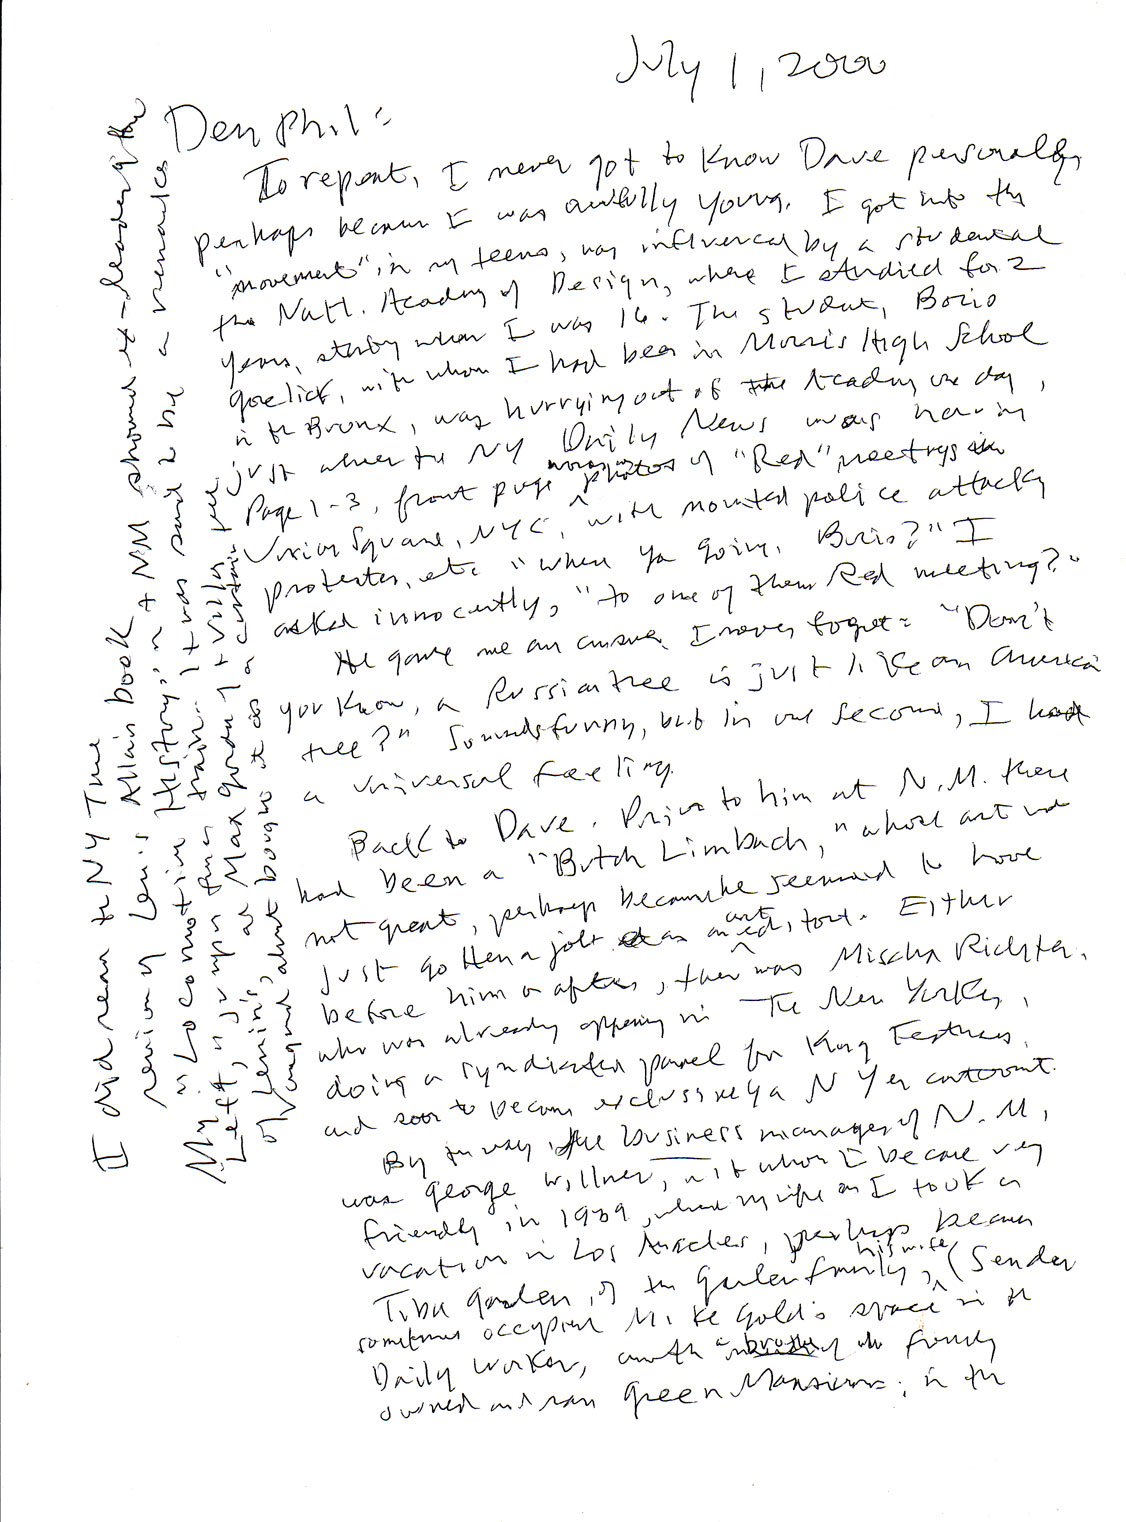 July 1, 2000
Dear Phil:
To repeat, I never got to know Dave personally,
perhaps because I was awfully young. I got into the
"movement" in my teens, was influenced by a student at
the Natl. Academy of Design, where I studied for 2
years, starting when I was 16. The student, Boris
Gorelick, with whom I had been in Morris High School
in the Bronx, was hurrying out of the Academy one day,
just when the NY Daily News was having
Page 1-3, front page photos of "Red" meetings in
Union Square, NYC, with mounted police attacking
protesters, etc. "Where ya going, Boris?" I
asked innocently, "to one of them Red meeting?"
He gave me an answer I never forget: "Don't
you know, a Russian tree is just like an American
tree?" Sounds funny, but in one second, I had
a universal feeling.
Back to Dave. Prior to him at N.M. there
had been a "Butch Limbach," whose art was
not great, perhaps because he seemed to have
just gotten a job as an art ed, too. Either
before him or after, there was Mischa Richter,
who was already appearing in The New Yorker,
doing a syndicated panel for King Features,
and soon to become exclusively a N Yer cartoonist.
By the way, the business manager of N.M,
was George Willner, with whom I became very
friendly in 1939, when my wife and I took a
vacation in Los Angeles, perhaps because
Tiba Garlen, of the Garlen family, his wife, (Sender
sometimes occupied Mike Gold's space in the
Daily Worker, and the a brother of the family
owned and ran Green Mansions, in the
I did read the NY Time
review of Lewis Allan's book
"Locomotive History," in + NM
My is jumps train. It was said to be a remarks
Left, as Max Gordon + Village
of Lenin's, about bought it as a certain